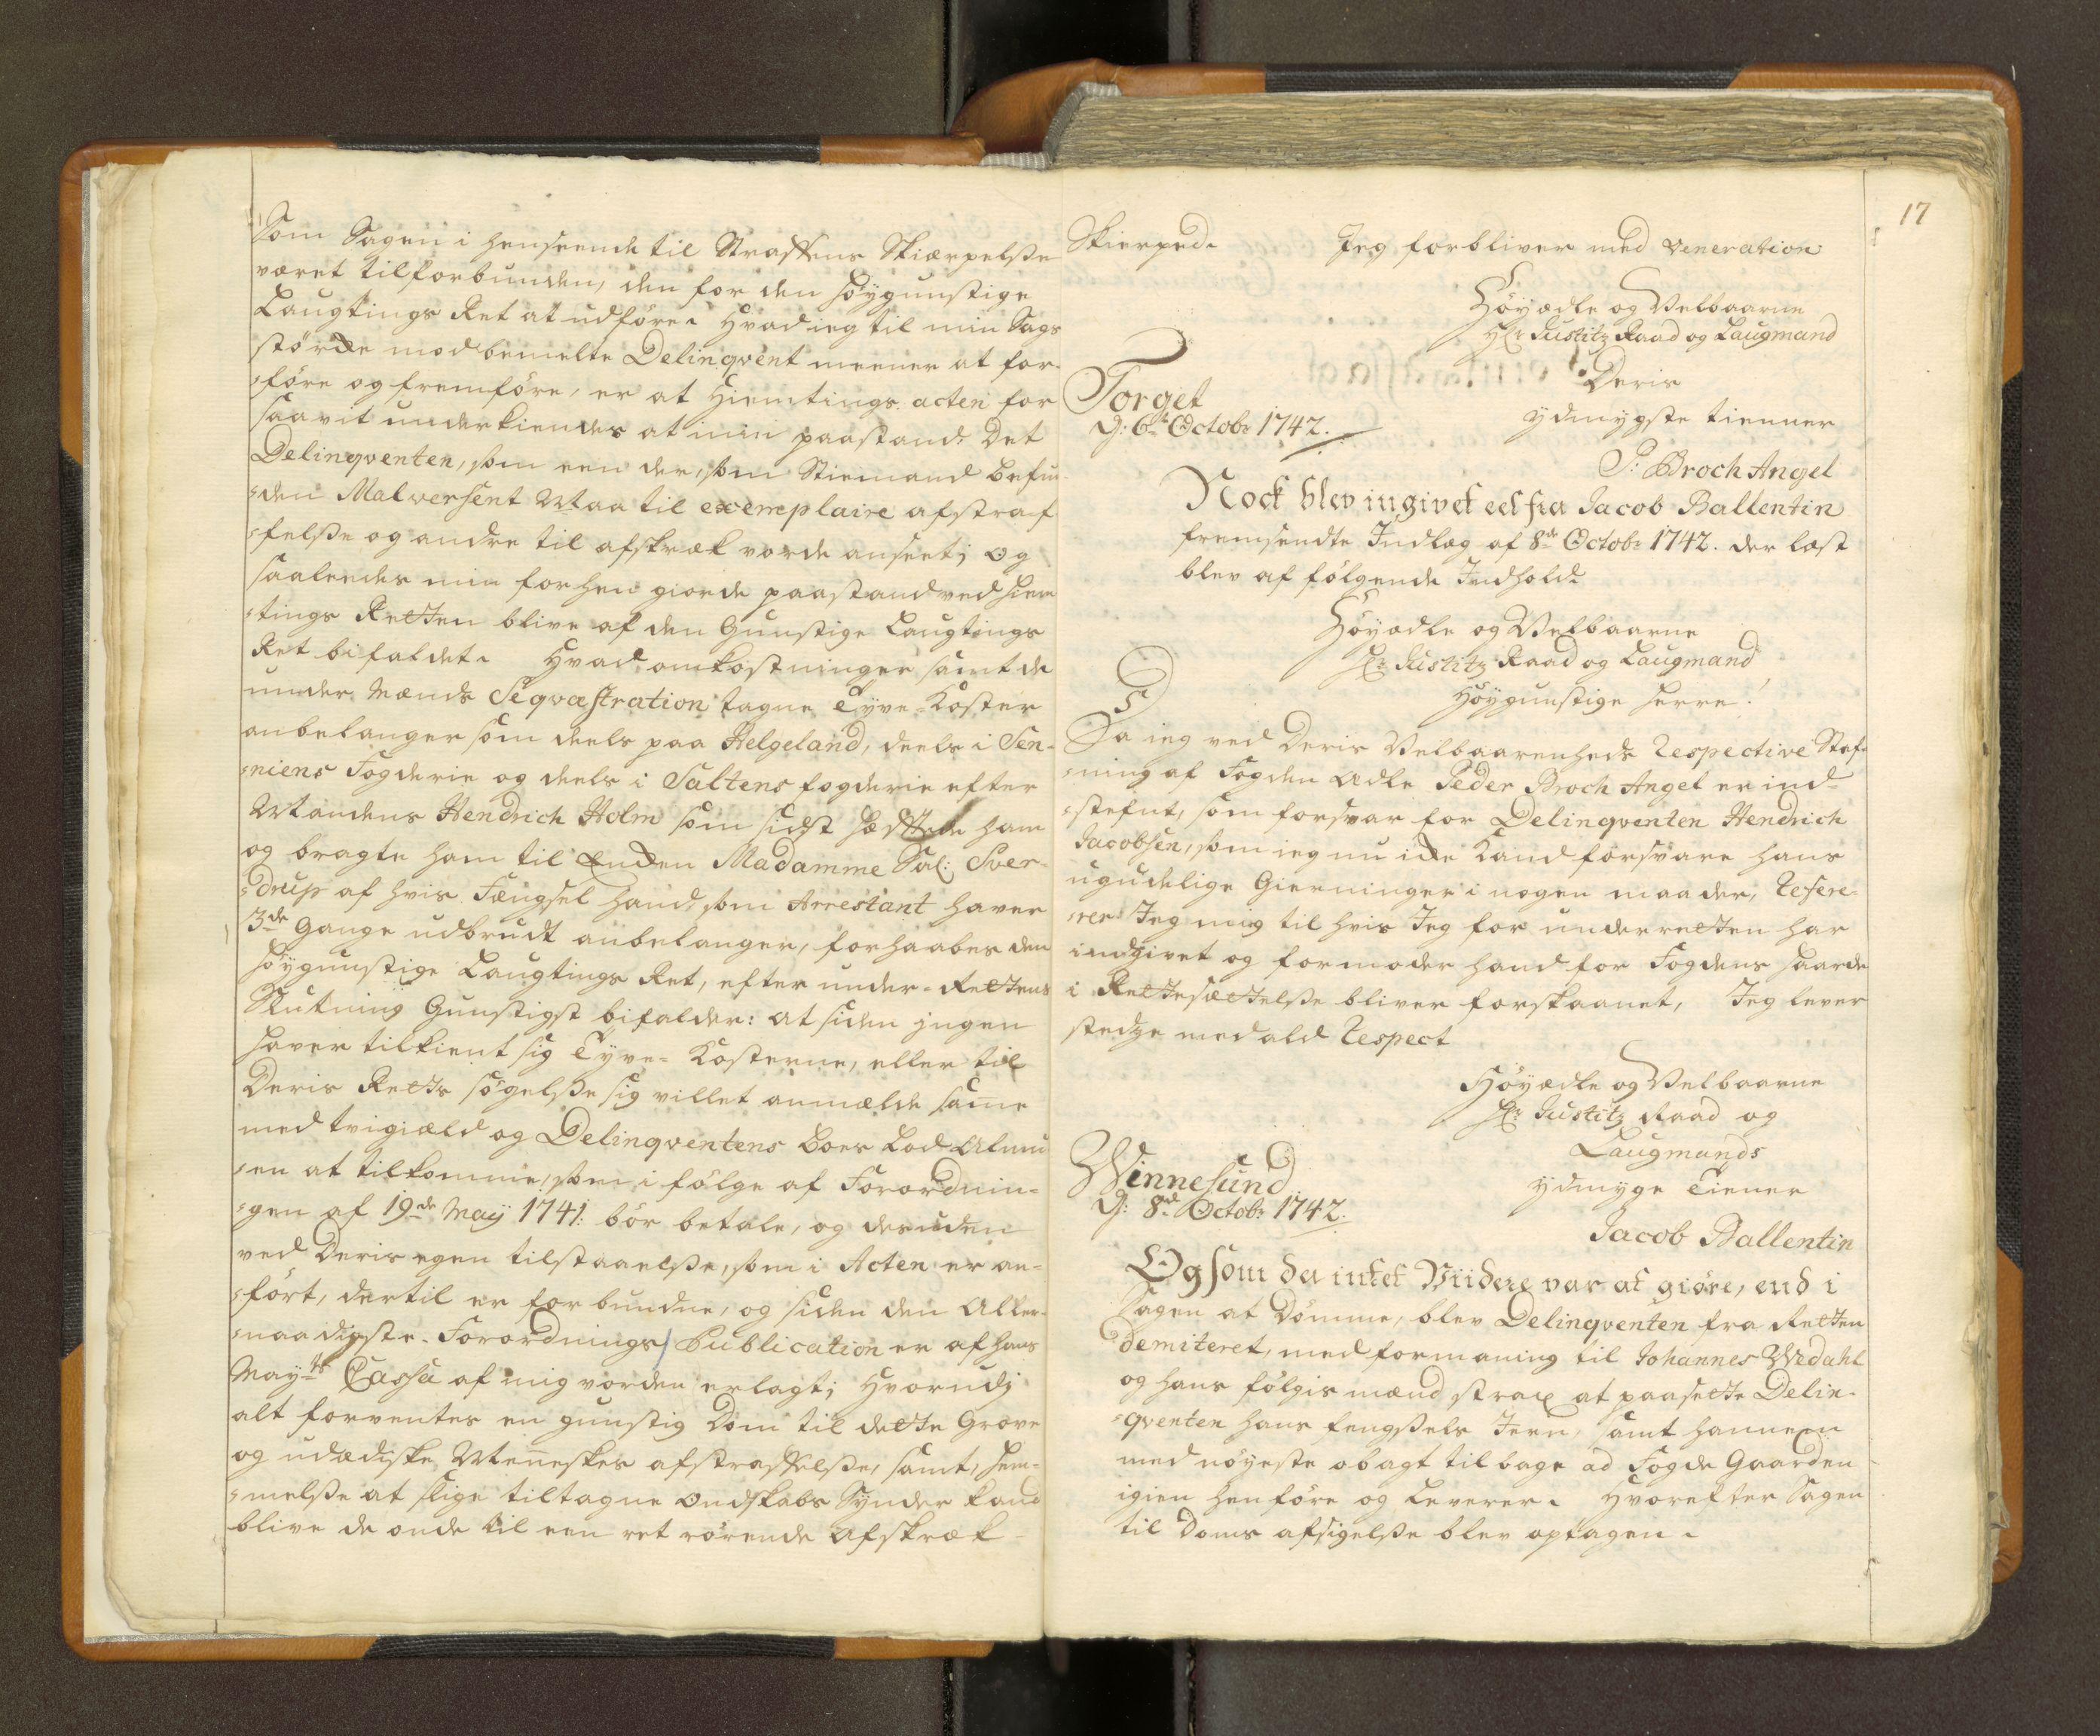 Som Sagen i henseende til Straffens Skiærpelsse
været tilforbunden, den for den höÿgunstige
Laugtings Ret at udföre. Hvad ieg til min Sags
störche mod bemelte Delinqvent meener at for-
=före og fremföre, er at Hiemtings acten for
saavit underkiendes at min paastand. Det
Delinqventen, som een der, som Stiemand befun-
=den Malversent Maa til exemplaire afstraf-
=felsse og andre til afskræk vorde anseet; og
saaleedes min forhen giorde paastand ved Hiem
=tings Retten blive af den Gunstige Laugtings
Ret bifaldet. Hvad omkostninger samt de
under Mænds Seqvæstration tagne Tyve=Koster
anbelanger som deels paa Helgeland, deels i Sen-
=niens Fogderie og deels i Saltens fogderie efter
Mandens Hendrich Holm som sidst hæfftede ham
og bragte ham til Enden Madamme Sal: Sver-
=drup af hvis Fængsel hand, som Arrestant haver
3de Gange udbrudt anbelanger, forhaabes den
höÿgunstige Laugtings Ret, efter under=Rettens
Slutning Gunstigst bifalder: at siden jngen
haver tilkient sig Tyve=Kosterne, eller til
Deris Retts sögelsse sig villet anmælde same
med tvigiæld og Delinqventens Boes Lod
=en at tilkomme, som i fölge af Forordnin=
=gen af 19de Maÿ 1741: bör betale, og desuden
ved Deris egen tilstaaelsse, som i Acten er an=
=fört, dertil er forbundne, og siden den Aller-
=naadigste Forordnings Publication er af hans
Mayts Cassa af mig vorden erlagt; Hvorudj
alt forventes en gunstig Dom til dette Grove
og udædiske Menneskes afstraffelsse, samt, hem=
=melsse at slige tiltagne ondskabs Synder kand
blive de onde til een ret rörende afskræk
17
Skierped. Jeg forbliver med veneration
Höÿædle og Velbaarne
Hr Justitz Raad og Laugmand
Deris
ydmygste tienner
P: Broch Angel
Torget
d: 6te Octobr 1742.
Nock blev ingivet eet fra Jacob Ballentin
fremsendte Indlæg af 8de Octobr 1742. der læst
blev af fölgende Indhold.
Höÿædle og Velbaarne
Hr Justitz Raad og Laugmand
Höÿgunstige Herre!
Da ieg ved Deris Velbaarenheds Respective Stef-
=ning af Fogden Adle Peder Broch Angel er ind-
=stefnt, som forsvar for Delinqventen Hendrich
Jacobsen, som ieg nu icke Kand forsvare hans
ugudelige Gierninger i nogen maader, Refere-
=rer Jeg mig til hvis Jeg for underretten har
indgivet og formoder hand for Fogdens haarde
i Rettesættelsse bliver forskaanet, Jeg lever
stedze med ald Respect
Höÿædle og Velbaarne
Hr Justitz Raad og
Laugmands
ydmyge Tiener
Jacob Ballentin
Winnesund
d: 8de Octobr 1742.
Og som da intet Viidere var at giöre, end i
Sagen at Dömme, blev Delinqventen fra Retten
demiteret, med formaning til Johannes Wedahl
og hans fölgis mænd strax at paasette Delin-
=qventen hans fengssels Jern, samt hannem
med nöyeste obagt tilbage ad Fogde Gaarden
igien henföre og Leverer. Hvorefter Sagen
til Doms afsigelsse blev optagen.